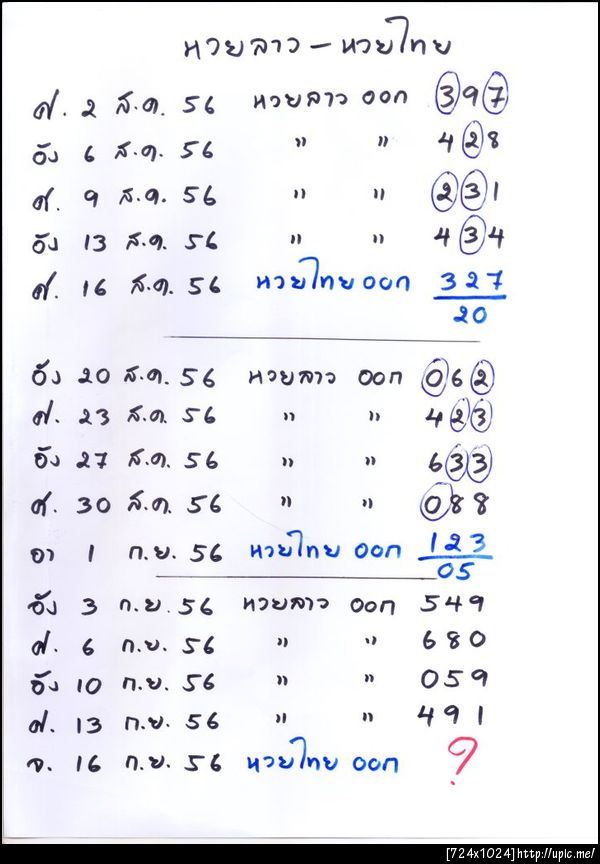 หวยลาว - หวยไทย
ศ. 2 ส.ค. 56 หวยลาว ออก 397
อัง 6 ส.ค. 56 " " 428
ศ. 9 ส.ค. 56 " " 231
อัง 13 ส.ค. 56 " " 434
ศ. 16 ส.ค. 56 หวยไทย ออก 327
20
อัง 20 ส.ค. 56 หวยลาว ออก 062
ศ. 23 ส.ค. 56 " " 423
อัง 27 ส.ค. 56 " " 633
ศ. 30 ส.ค. 56 " " 088
อา 1 ก.ย. 56 หวยไทย ออก 123
05
อัง 3 ก.ย. 56 หวยลาว ออก 549
ศ. 6 ก.ย. 56 " " 680
อัง 10 ก.ย. 56 " " 059
ศ. 13 ก.ย. 56 " " 491
จ. 16 ก.ย. 56 หวยไทย ออก ?
[724x1024]http://upic.me/